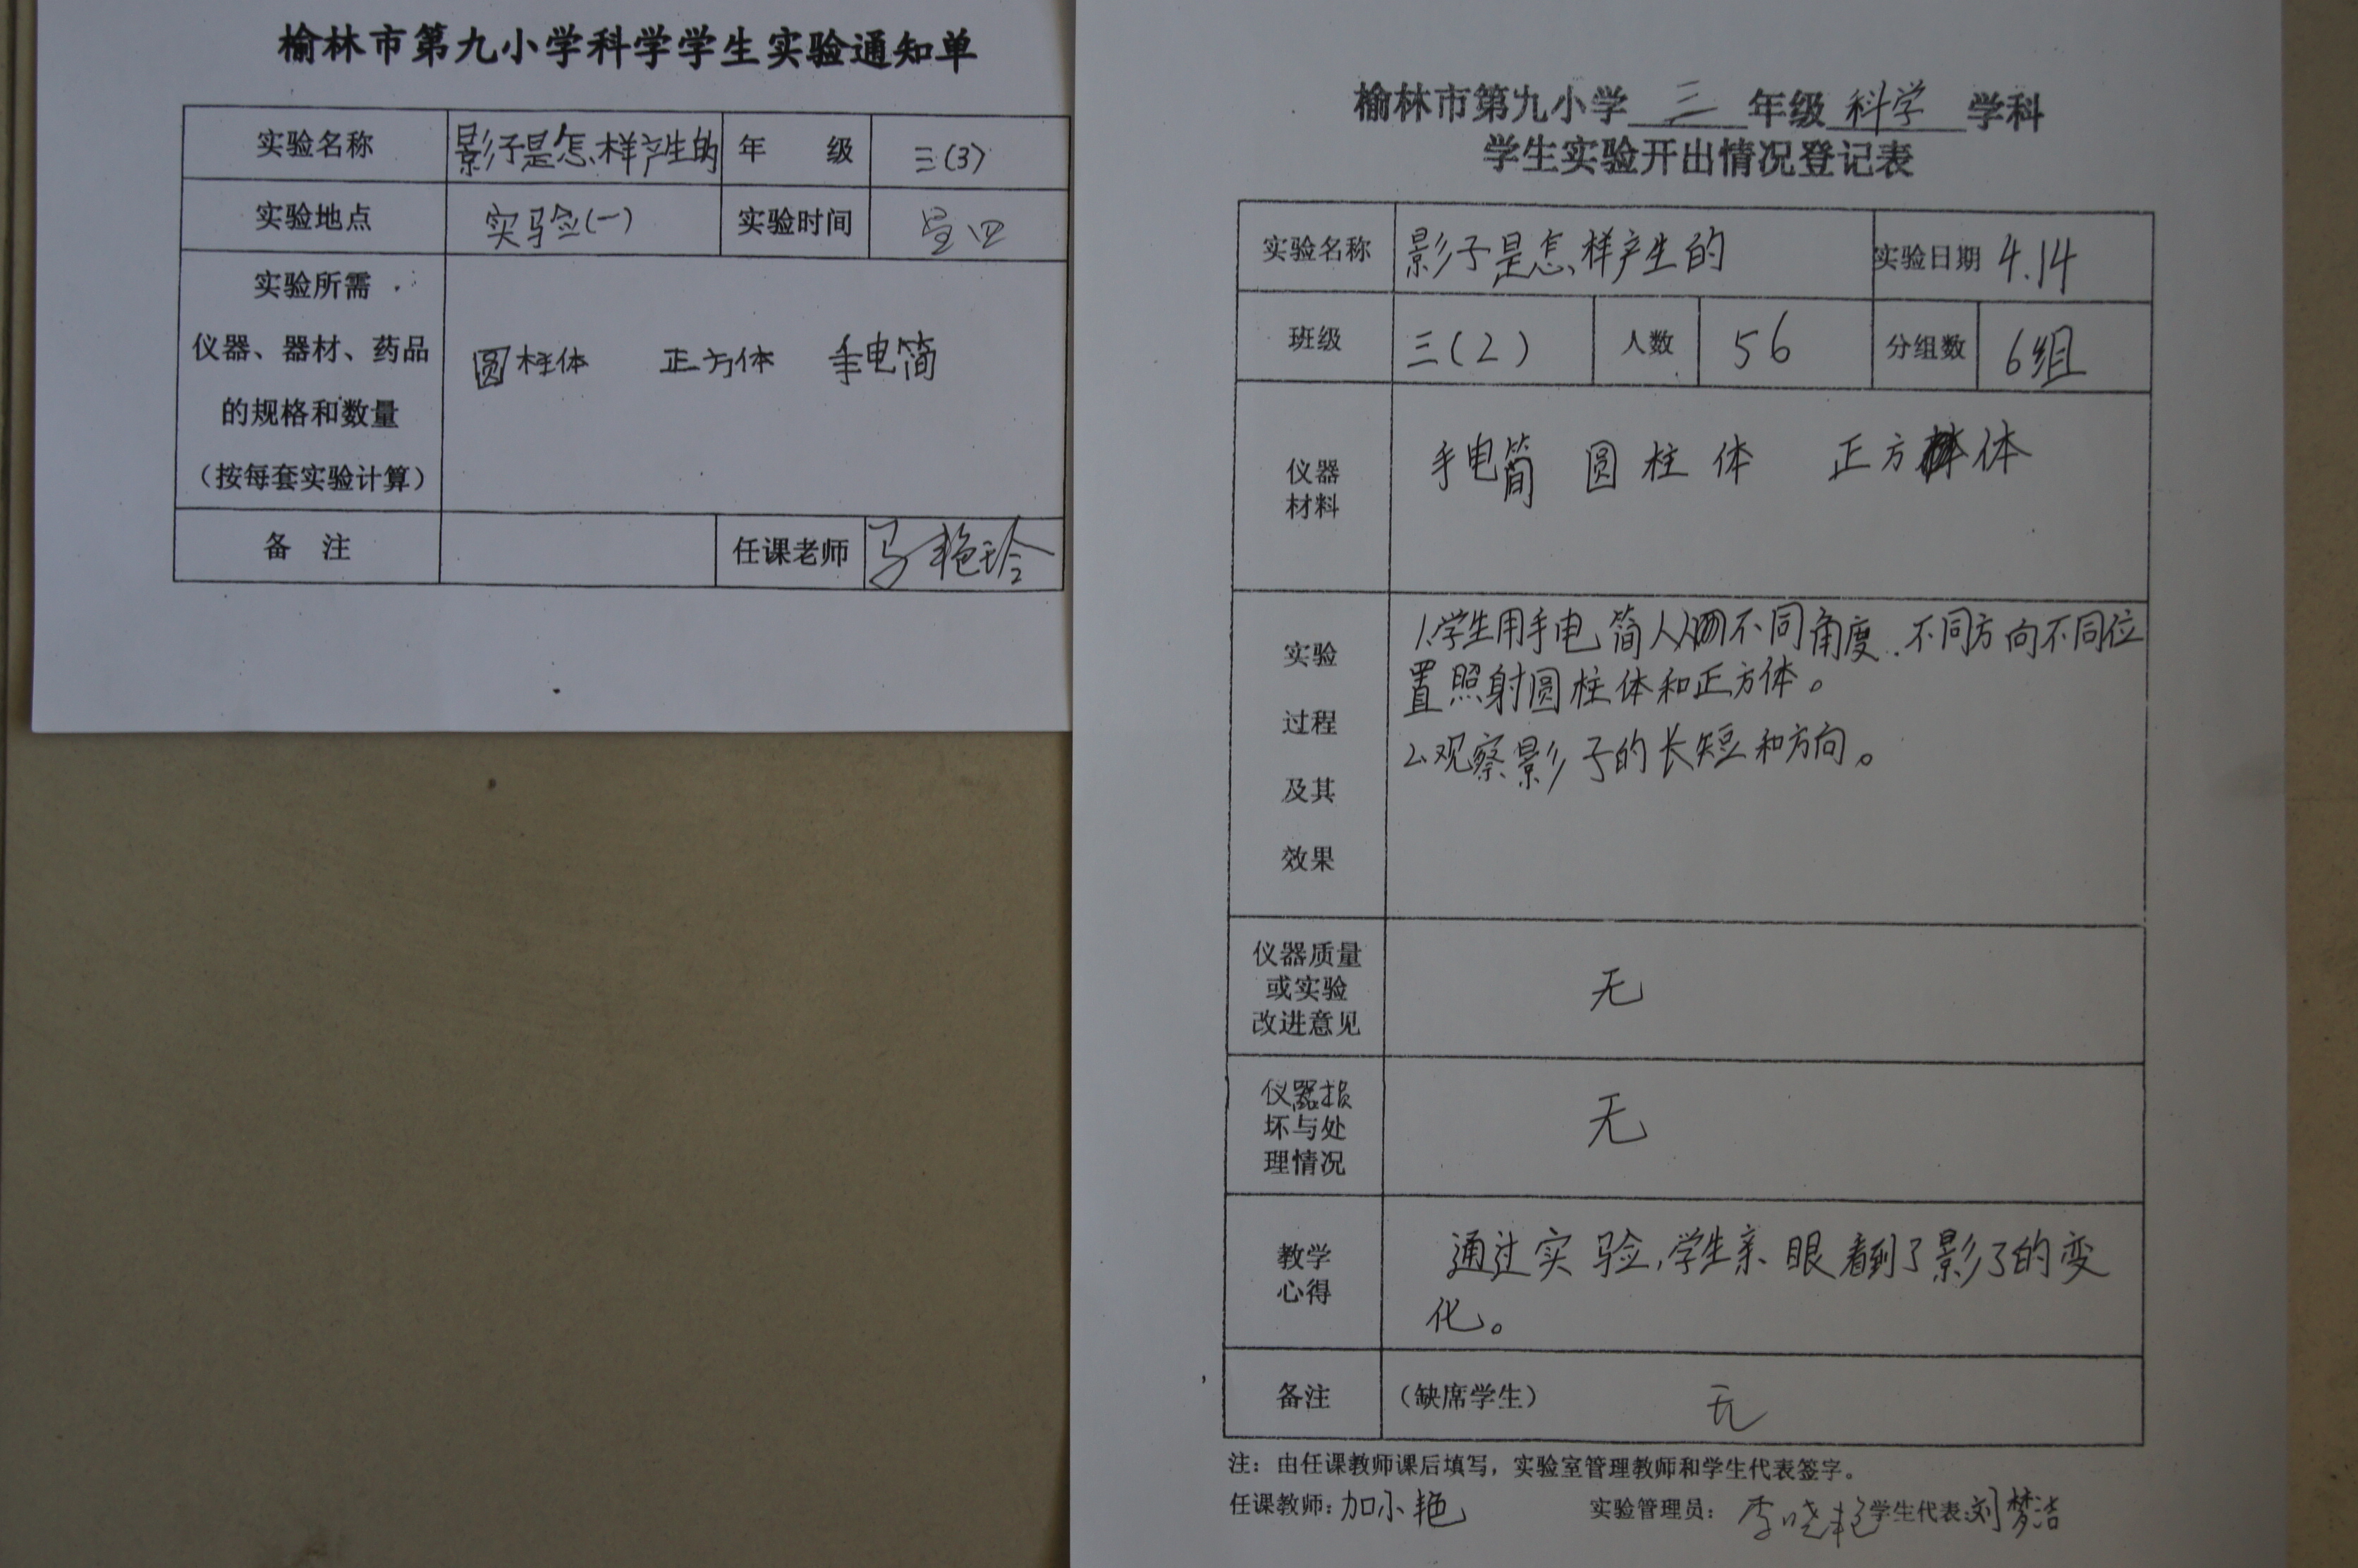 榆林市第九小学科学学生实验通知单
实验名称 影子是怎样产生的 年 级 三(3)
实验地点 实验(一) 实验时间 星四
实验所需
仪器、器材、药品
的规格和数量
(按每套实验计算)
圆柱体 正方体 手电筒
备 注 任课老师 马艳玲
榆林市第九小学 三 年级 科学 学科
学生实验开出情况登记表
实验名称 影子是怎样产生的 实验日期 4.14
班级 三(2) 人数 56 分组数 6组
仪器
材料
手电筒 圆柱体 正方体
实验
过程
及其
效果
1.学生用手电筒从不同角度、不同方向不同位
置照射圆柱体和正方体。
2.观察影子的长短和方向。
仪器质量
或实验
改进意见
无
仪器损
坏与处
理情况
无
教学
心得
通过实验,学生亲眼看到了影了的变
化。
备注 (缺席学生) 无
注:由任课教师课后填写,实验室管理教师和学生代表签字。
任课教师:加小艳 实验管理员:李晓艳 学生代表:刘梦洁